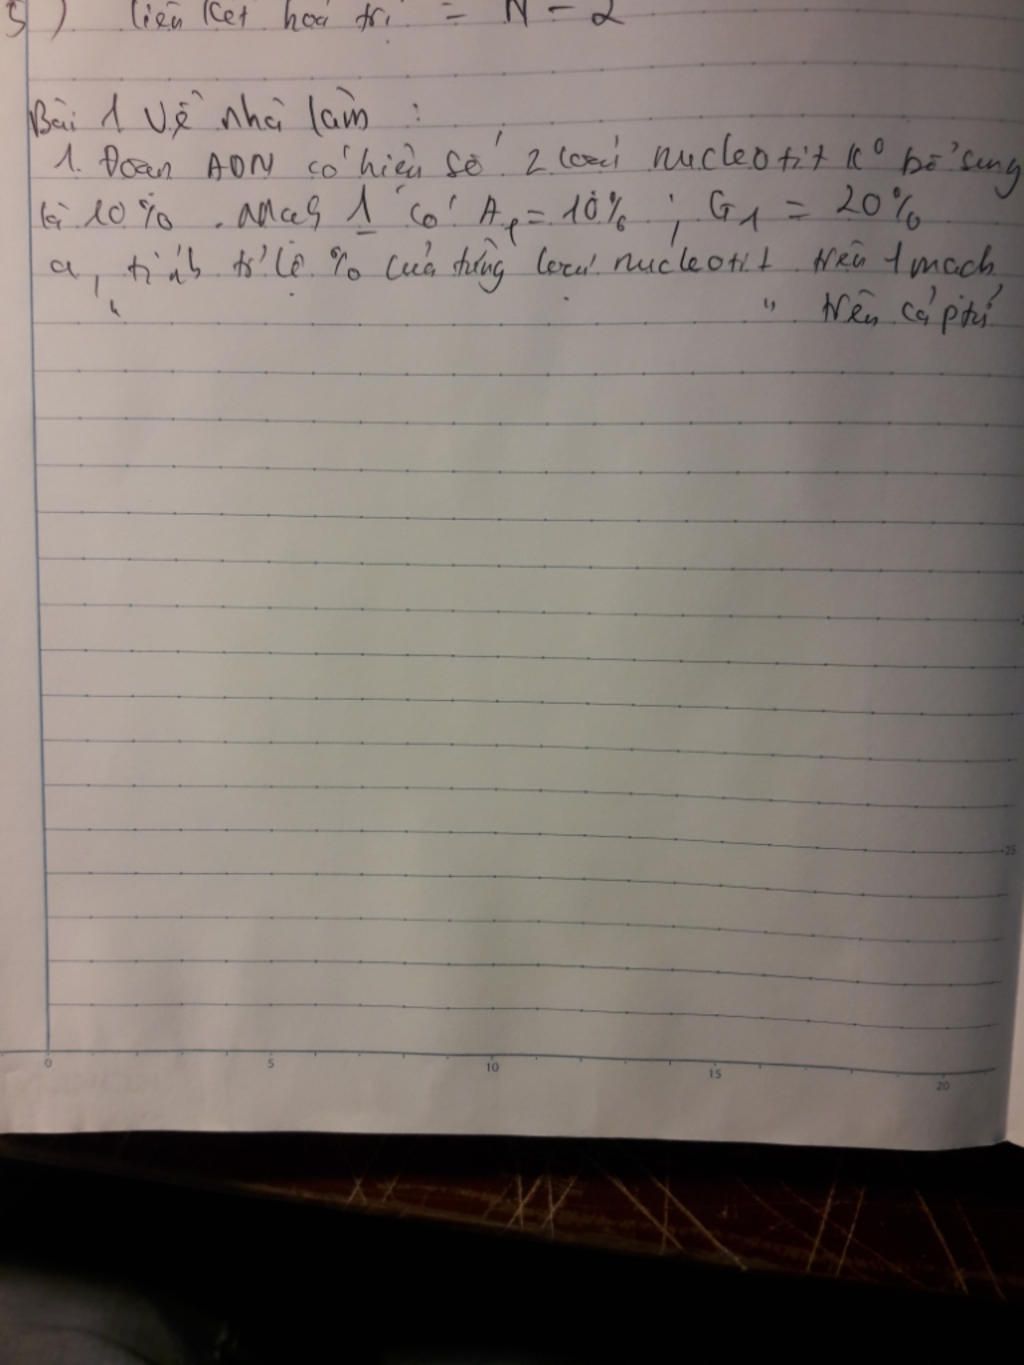 5) liên kết hoá trị = N - 2
Bài 1 Về nhà làm :
1. Đoạn ADN có hiệu số 2 loại nucleotit k° bổ sung
là 10%. Mạch 1 có A₁ = 10% ; G₁ = 20%
a, tính tỉ lệ % của từng loại nucleotit trên 1 mạch
" " trên cả ptử
0 5 10 15 20
25